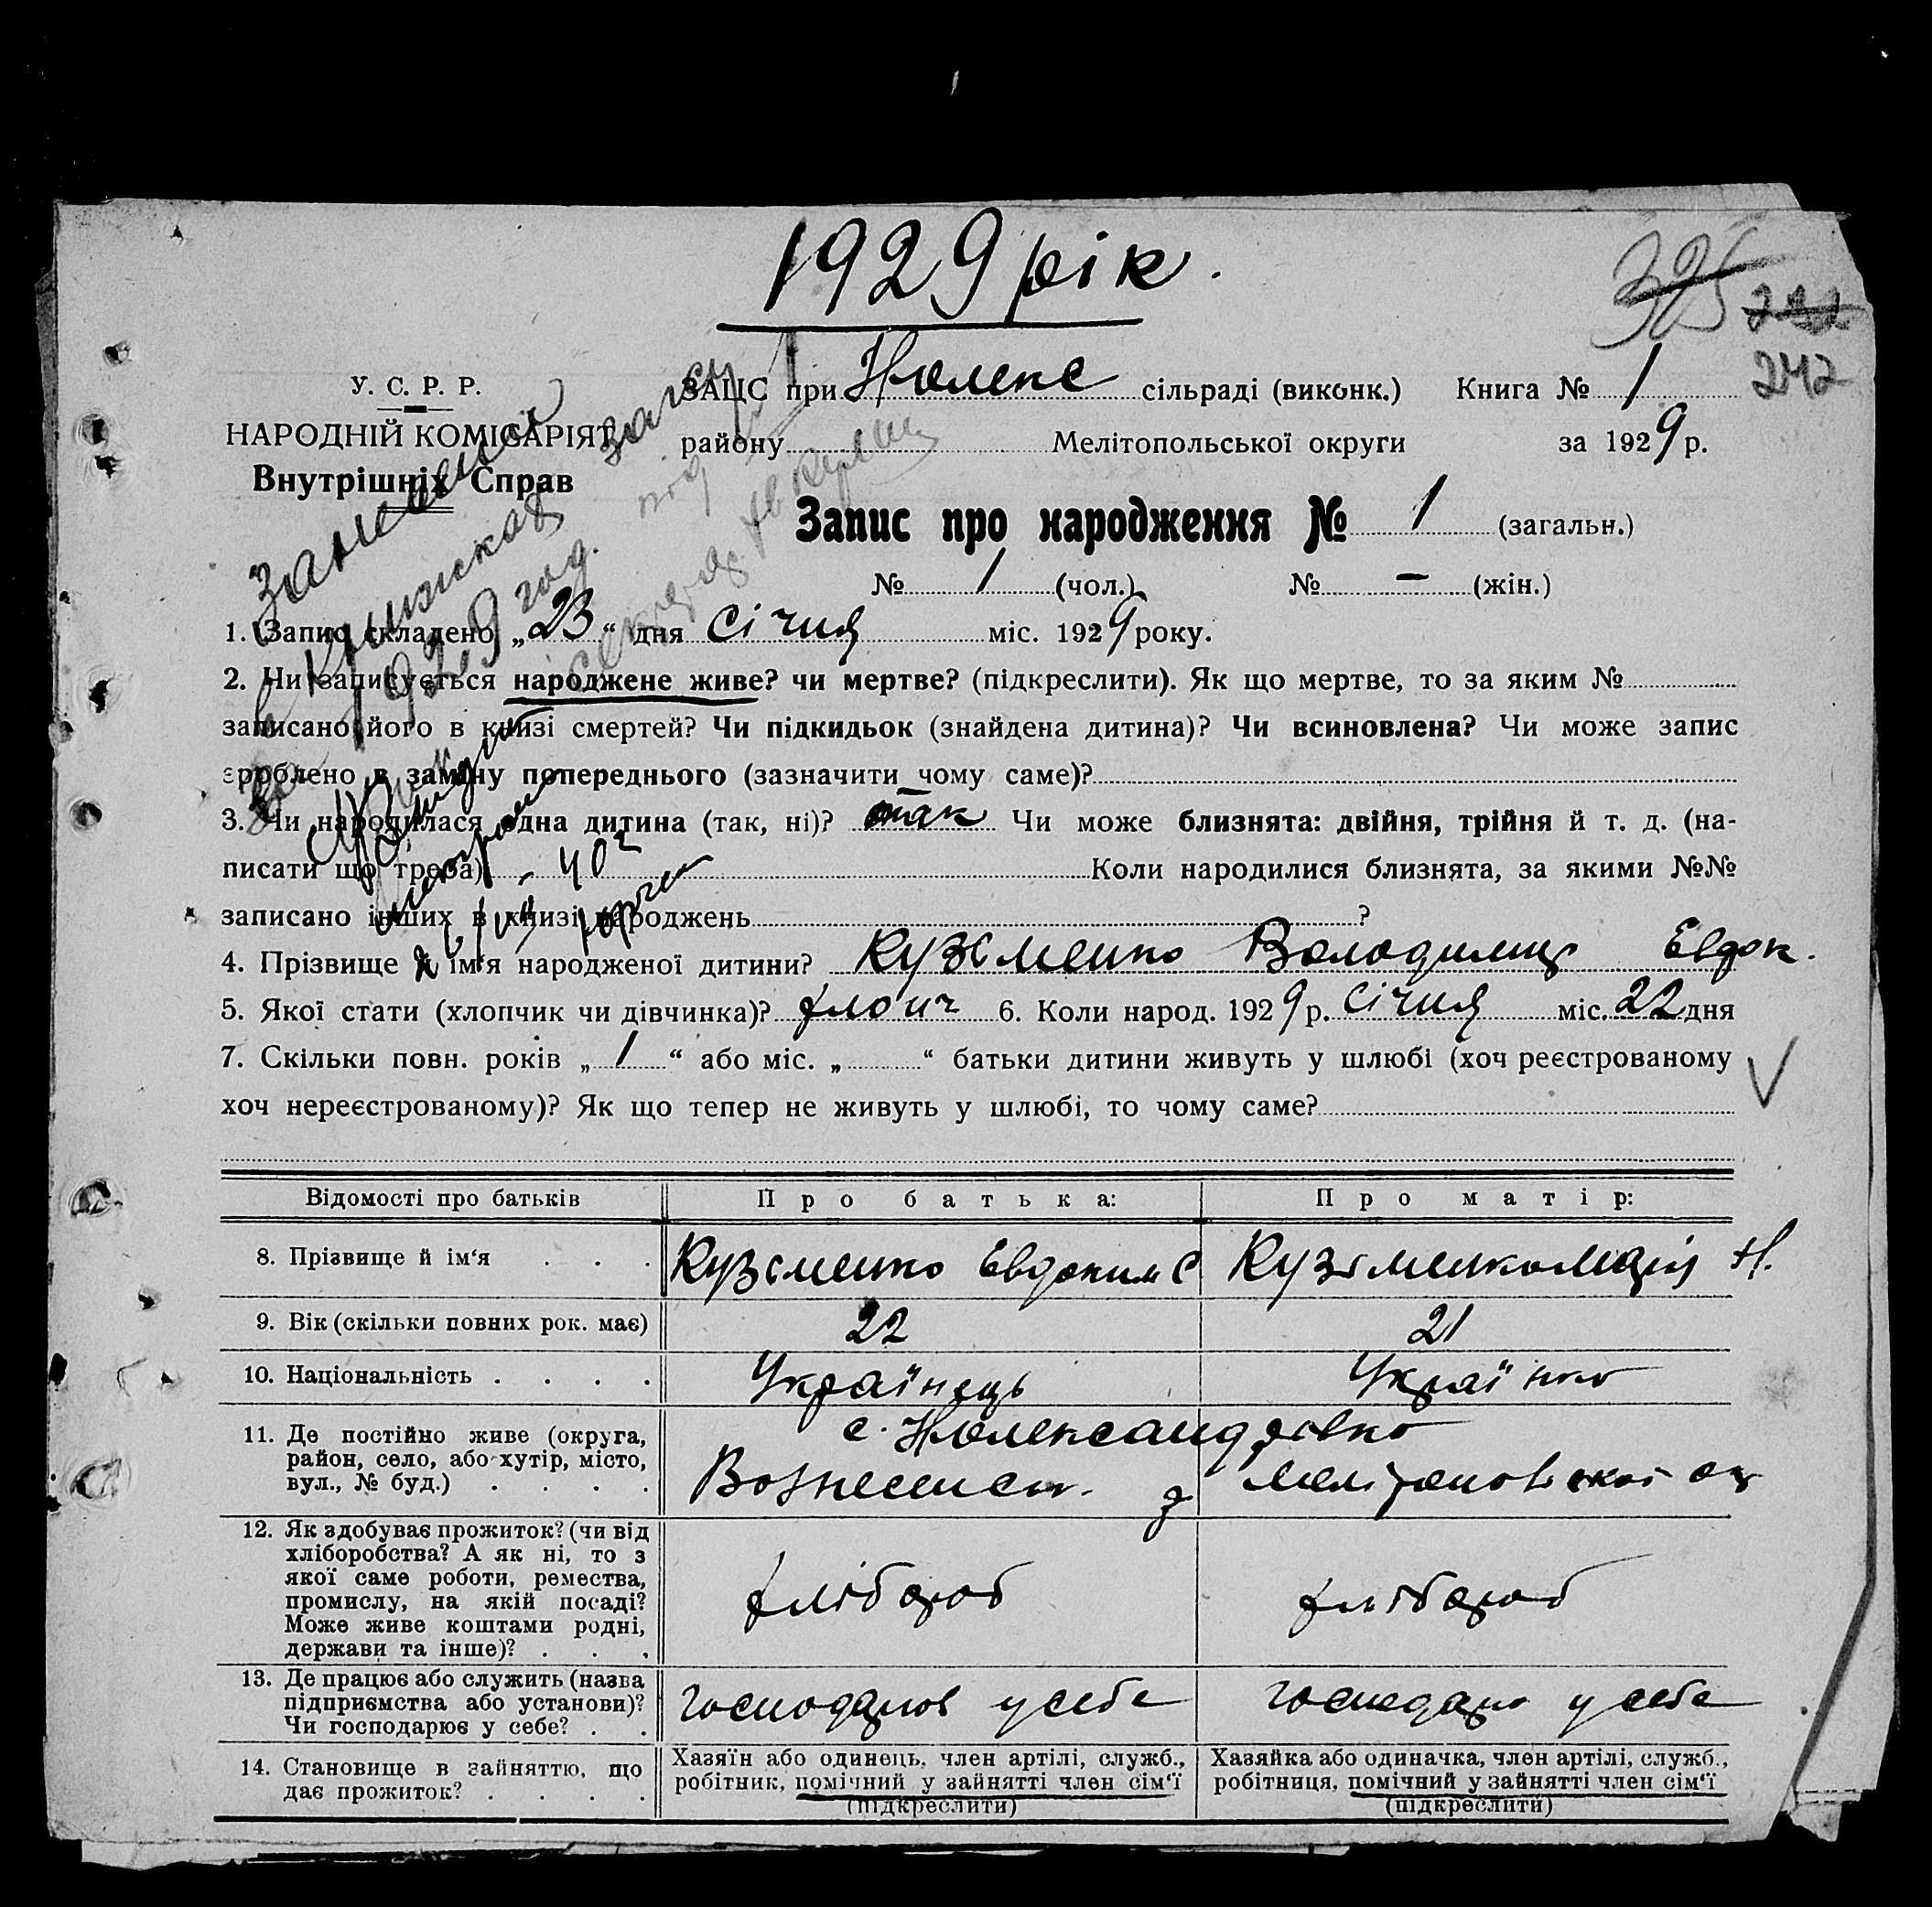 1929 рік.
395 242
242
У. С. Р. Р.
НАРОДНІЙ КОМІСАРІЯТ
Внутрішніх Справ
ЗАЦС при Н Олекс сільраді (виконк.) Книга № 1
району Мелітопольської округи за 1929 р.
Запис про народження № 1 (загальн.)
№ 1 (чол.) № – (жін.)
1929 год.
1. Запис складено „23“ дня січня міс. 1929 року.
2. Чи записується народжене живе? чи мертве? (підкреслити). Як що мертве, то за яким №
записано його в книзі смертей? Чи підкидьок (знайдена дитина)? Чи всиновлена? Чи може запис
зроблено в заміну попереднього (зазначити чому саме)?
3. Чи народилася одна дитина (так, ні)? так Чи може близнята: двійня, трійня й т. д. (на-
писати що треба) Коли народилися близнята, за якими №№
записано інших в книзі народжень ?
4. Прізвище й ім'я народженої дитини? Кузьменко Володимир Евдок.
5. Якої стати (хлопчик чи дівчинка)? хлопч 6. Коли народ. 1929 р. січня міс. 22 дня
7. Скільки повн. років „1“ або міс. „ “ батьки дитини живуть у шлюбі (хоч реєстрованому
хоч нереєстрованому)? Як що тепер не живуть у шлюбі, то чому саме?
Відомості про батьків Про батька: Про матір:
8. Прізвище й ім'я . . . Кузьменко Евдоким С Кузьменко Марія Н.
9. Вік (скільки повних рок. має) 22 21
10. Національність . . . . Українець Українка
11. Де постійно живе (округа,
район, село, або хутір, місто,
вул., № буд.) . . . .
с. Н Олександрівка
Вознесенськ. р Мелітопольскої ок
12. Як здобуває прожиток? (чи від
хліборобства? А як ні, то з
якої саме роботи, ремества,
промислу, на якій посаді?
Може живе коштами родні,
держави та інше)? . . .
хлібороб хлібороб
13. Де працює або служить (назва
підприємства або установи)?
Чи господарює у себе? . .
господарює у себе у себе
14. Становище в зайняттю, що
дає прожиток? . . . .
Хазяїн або одинець, член артілі, служб.,
робітник, помічний у зайнятті член сім'ї
(підкреслити)
Хазяйка або одиначка, член артілі, служб.,
робітниця, помічний у зайнятті член сім'ї
(підкреслити)